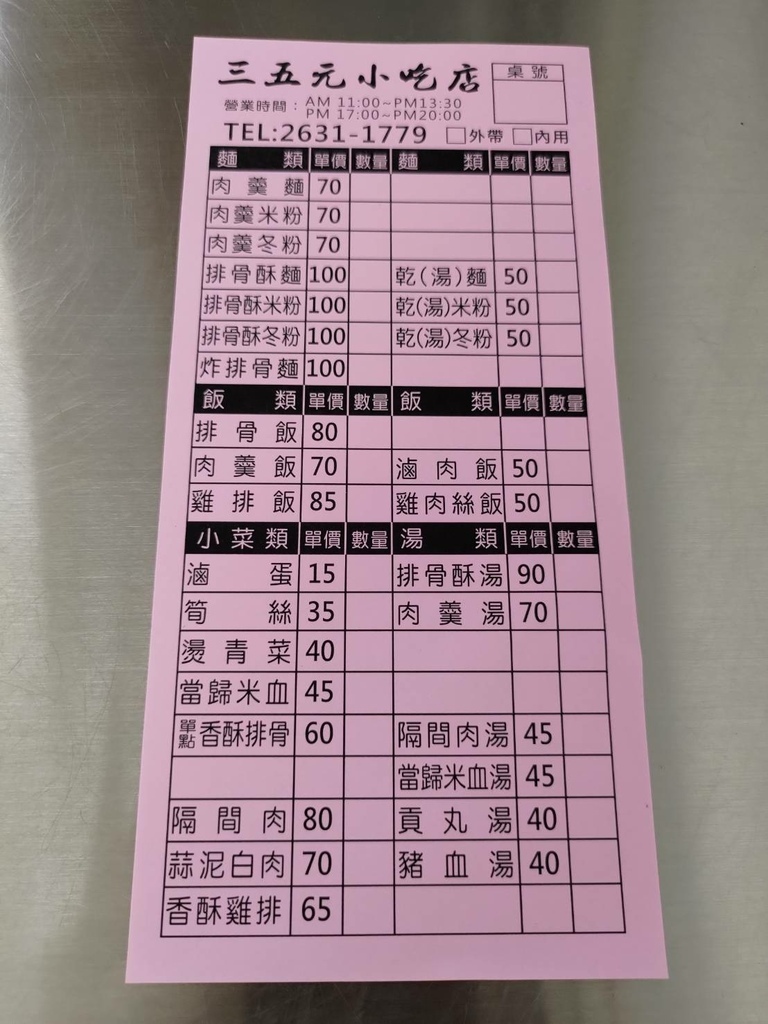 三五元小吃店 桌號
營業時間：AM 11:00~PM13:30
PM 17:00~PM20:00
TEL:2631-1779 □外帶 □內用
麵類 單價 數量 麵類 單價 數量
肉羹麵 70
肉羹米粉 70
肉羹冬粉 70
排骨酥麵 100 乾(湯)麵 50
排骨酥米粉 100 乾(湯)米粉 50
排骨酥冬粉 100 乾(湯)冬粉 50
炸排骨麵 100
飯類 單價 數量 飯類 單價 數量
排骨飯 80
肉羹飯 70 滷肉飯 50
雞排飯 85 雞肉絲飯 50
小菜類 單價 數量 湯類 單價 數量
滷蛋 15 排骨酥湯 90
筍絲 35 肉羹湯 70
燙青菜 40
當歸米血 45
單點香酥排骨 60 隔間肉湯 45
當歸米血湯 45
隔間肉 80 貢丸湯 40
蒜泥白肉 70 豬血湯 40
香酥雞排 65